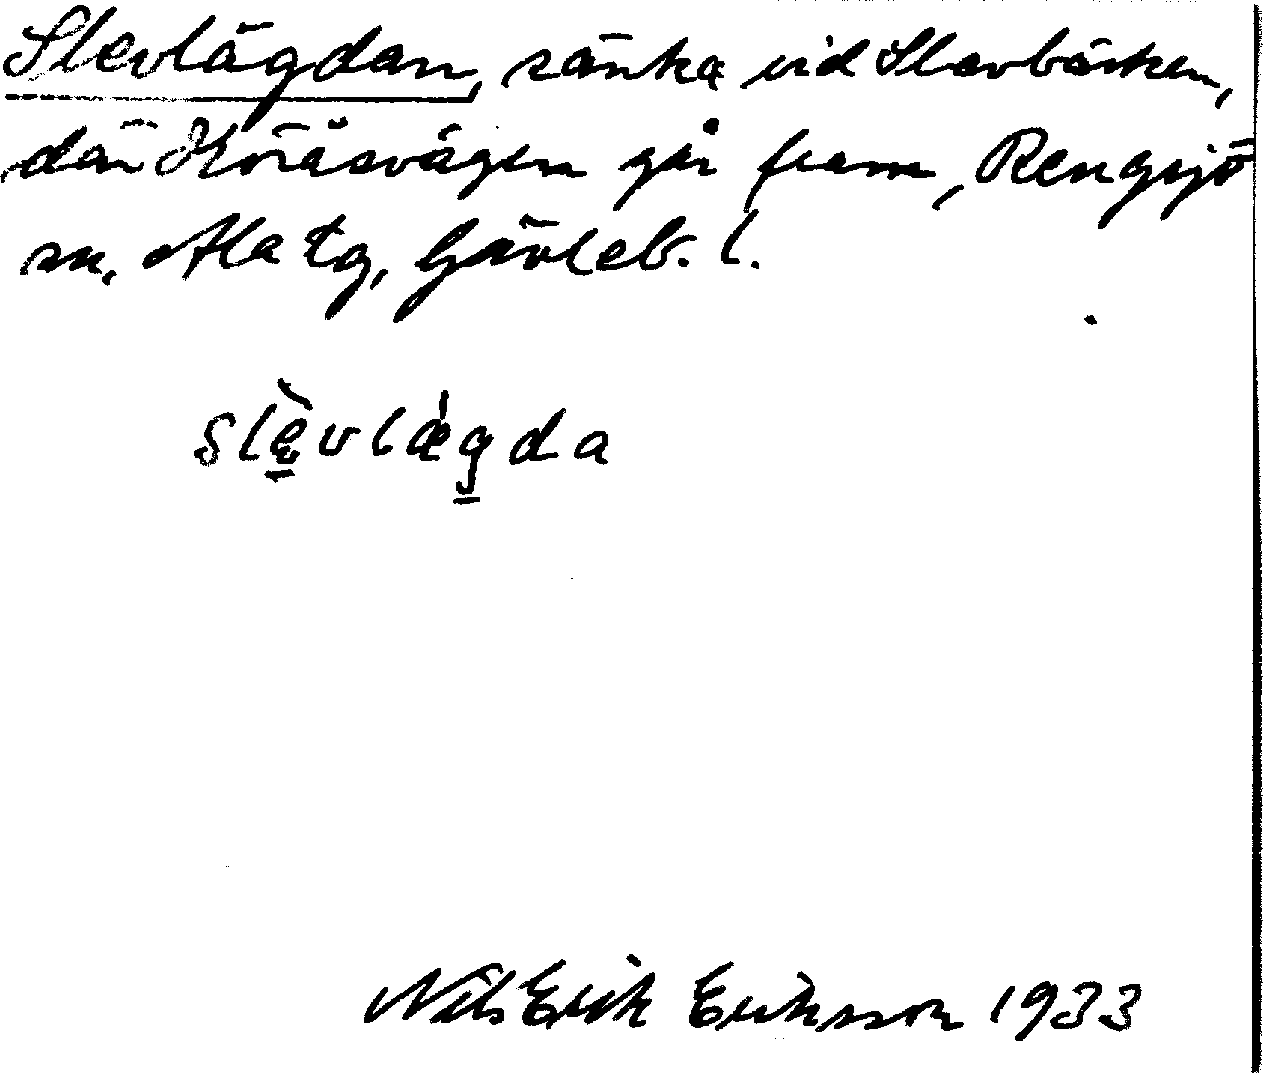 Slevlägdan, sänka vid Slevbäcken,
där Höråsvägen går fram, Rengsjö
sn, Ala tg, Gävleb. l.
slèvlǽgda
Nils Erik Eriksson 1933